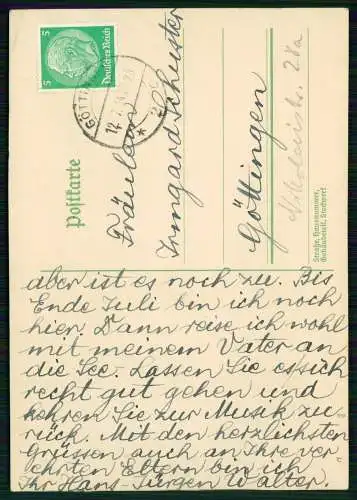 5
Deutsches Reich
5
GÖTTIN
12.7.34
Postkarte
Fräulein
Irmgard Schuster
Göttingen
Nikolaistr. 28a
Straße, Hausnummer,
Gebäudeteil, Stockwerk
aber ist es noch zu. Bis
Ende Juli bin ich noch
hier. Dann reise ich wohl
mit meinem Vater an
die See. Lassen Sie es sich
recht gut gehen und
kehren Sie zur Musik zu-
rück. Mit den herzlichsten
Grüssen auch an Ihre ver-
ehrten Eltern bin ich
Ihr Hans-Jürgen Walter.